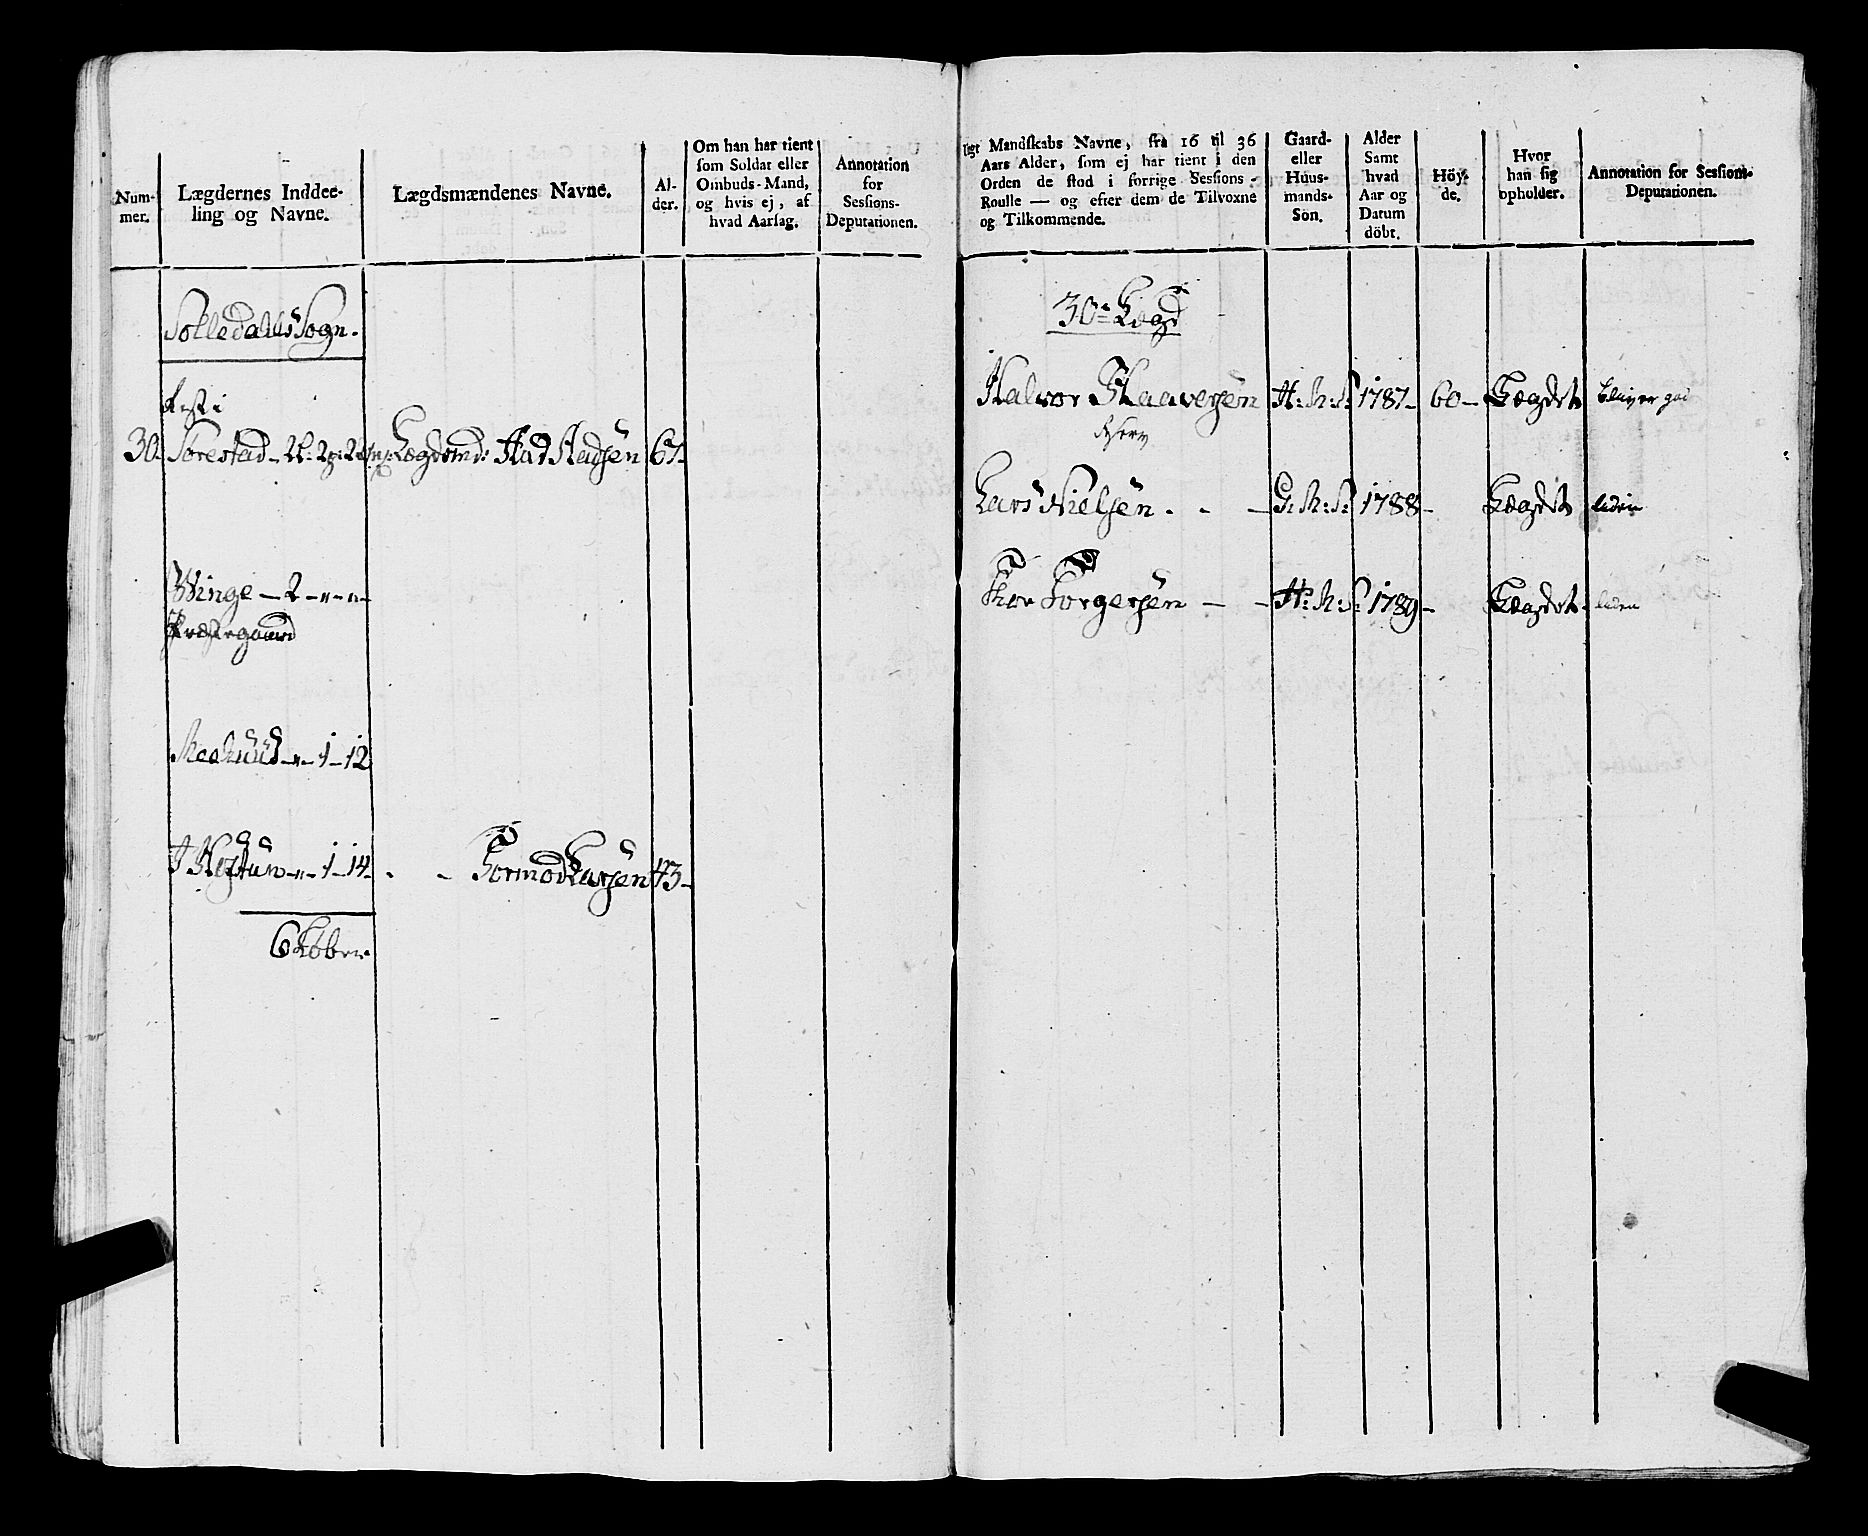 Num-
mer.
Lægdernes Inddee-
ling og Navne.
Lægdsmændenes Navne.
Al-
der.
Om han har tient
som Soldat eller
Ombuds-Mand,
og hvis ej, af
hvad Aarsag.
Annotation
for
Sessions-
Deputationen.
Solledals Sogn.
Rest i
30. Sørestad - 2
Lægdsmd: Had Hadsen 67.
Winge - 2 - " - " -
Præstegaard
- " - 1 - 12
- " - 1 - 14 - - - Tormod Larsen 43 -
6 Køber
Ungt Mandskabs Navne, fra 16 til 36
Aars Alder, som ej har tient i den
Orden de stod i forrige Sessions-
Roulle — og efter dem de Tilvoxne
og Tilkommende.
Gaard-
eller
Huus-
mands-
Sön.
Alder
Samt
hvad
Aar og
Datum
döbt.
Höy-
de.
Hvor
han sig
opholder.
Annotation for Sessions-
Deputationen.
30te Lægd
Halvor Haaversen H: M: S: 1787 - 60 - Lægdet bliver god
Reserv
Lars Nielsen . - - G: M: S: 1788 - Lægdet liden
Thor Torgersen - - H: M: S: 1789 - Lægdet. liden